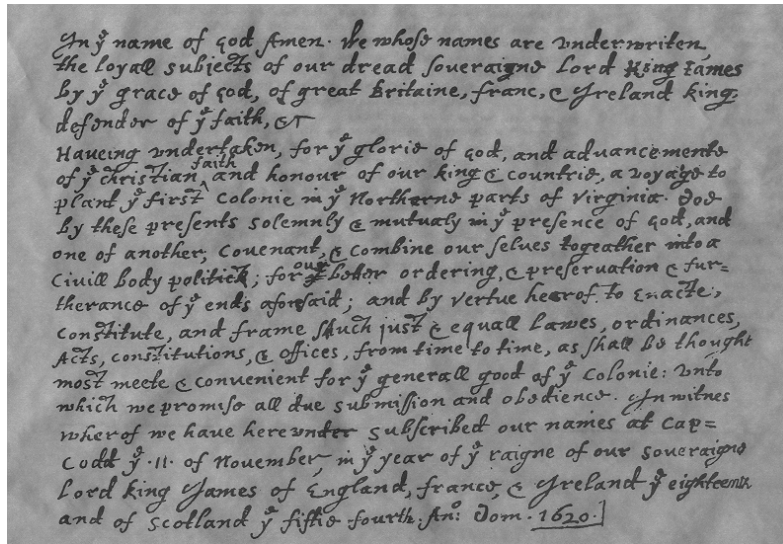 In yͤ name of god Amen. We whose names are underwriten,
the loyall subjects of our dread soveraigne Lord King Iames
by yͤ grace of god, of great Britaine, franc, & Ireland king,
defender of yͤ faith, &c
Haveing undertaken, for yͤ glorie of god, and advancemente
of yͤ christian ^faith and honour of our king & countrie, a voyage to
plant yͤ first colonie in yͤ Northerne parts of Virginia. doe
by these presents solemnly & mutualy in yͤ presence of god, and
one of another, covenant, & combine our selves togeather into a
civill body politick; for our better ordering, & preservation & fur=
therance of yͤ ends aforesaid; and by vertue hearof to enacte,
constitute, and frame shuch just & equall lawes, ordinances,
Acts, constitutions, & offices, from time to time, as shall be thought
most meete & convenient for yͤ generall good of yͤ Colonie: unto
which we promise all due submission and obedience. In witnes
wherof we have hereunder subscribed our names at Cap=
Codd yͤ .11. of November, in yͤ year of yͤ raigne of our soveraigne
Lord king James of England, france, & Ireland yͤ eighteenth
and of Scotland yͤ fiftie fourth. Anͦ: Dom. 1620.]